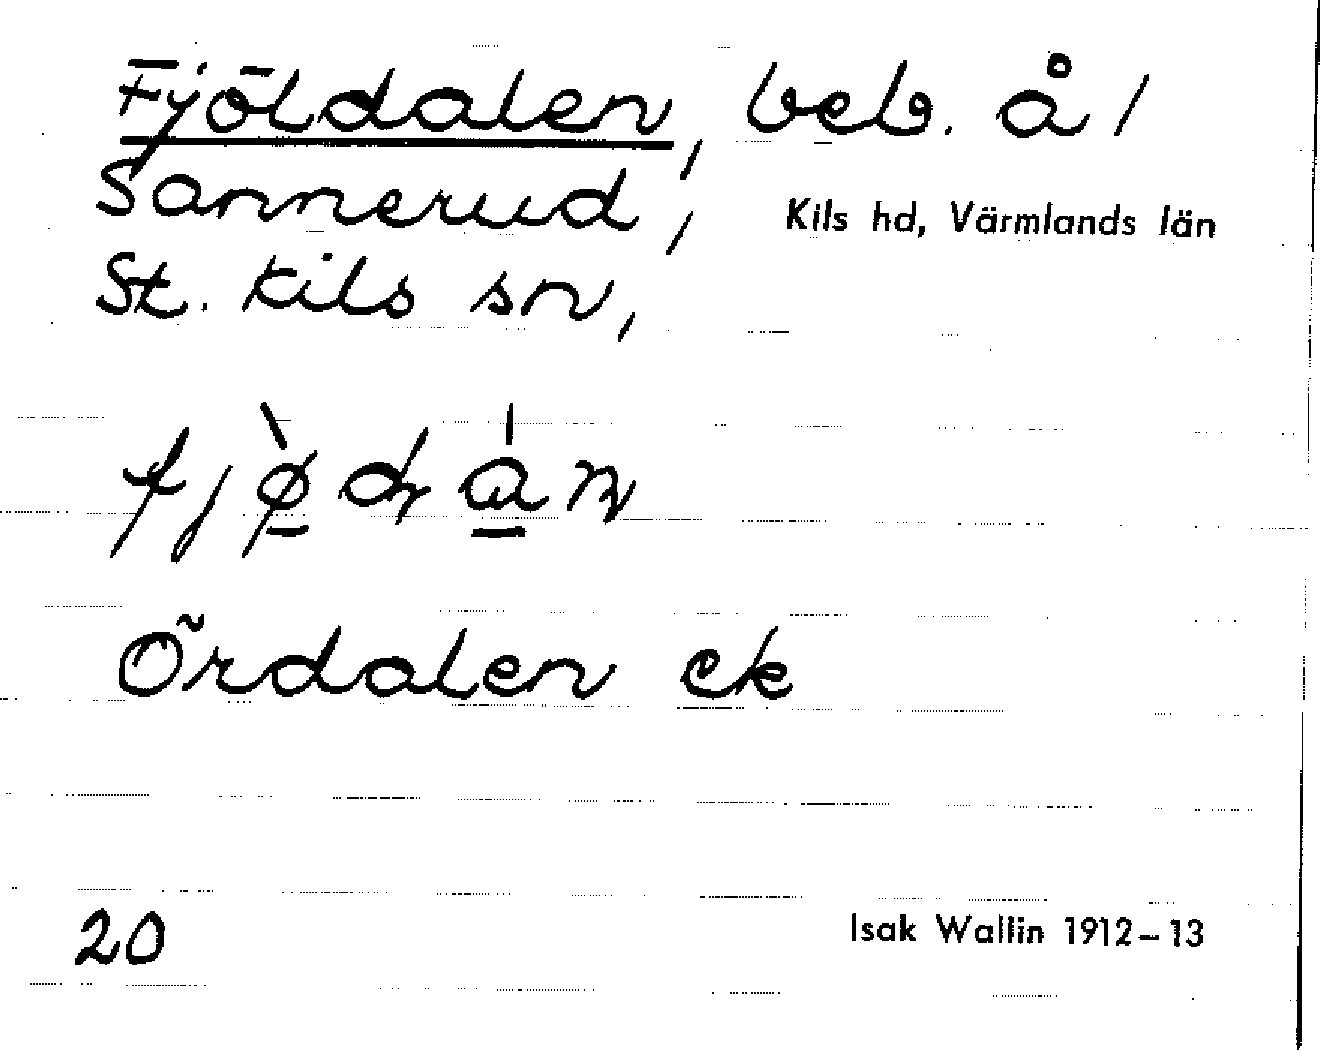 Fjöldalen, beb. å /
Sannerud, Kils hd, Värmlands län
St. Kils sn,
Ördalen ek
20
Isak Wallin 1912–13